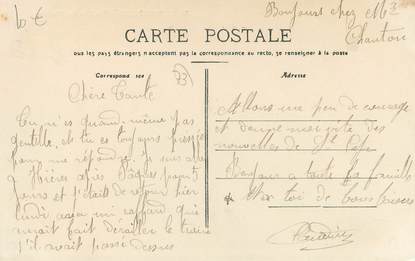 10 €
Bonjours chez Mr
Chanton
CARTE POSTALE
Tous les pays étrangers n'acceptent pas la correspondance au recto, se renseigner à la poste
Correspondance
73
Adresse
Chère Tante
Tu n'es quand même pas
gentille, et tu es toujours
pour me répondre. Je suis allé
à Hières après Pâques pour 5
jours et j'étais de retour hier
lundi avec un raffard qui
aurait fait dérailler le train
s'il avait passé dessus
Allons une peu de courage
et donne moi vite des
nouvelles de
Bonjour a toute la famille
et a toi de bons baisers